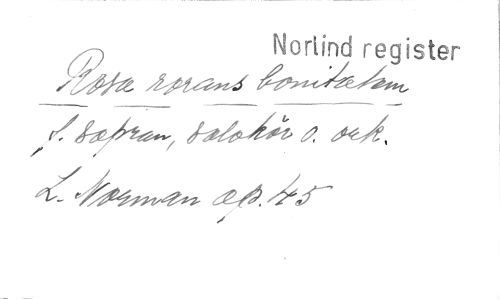 Norlind register
Rosa rorans bonitatem
f. sopran, solokör o. ork.
L. Norman op. 45